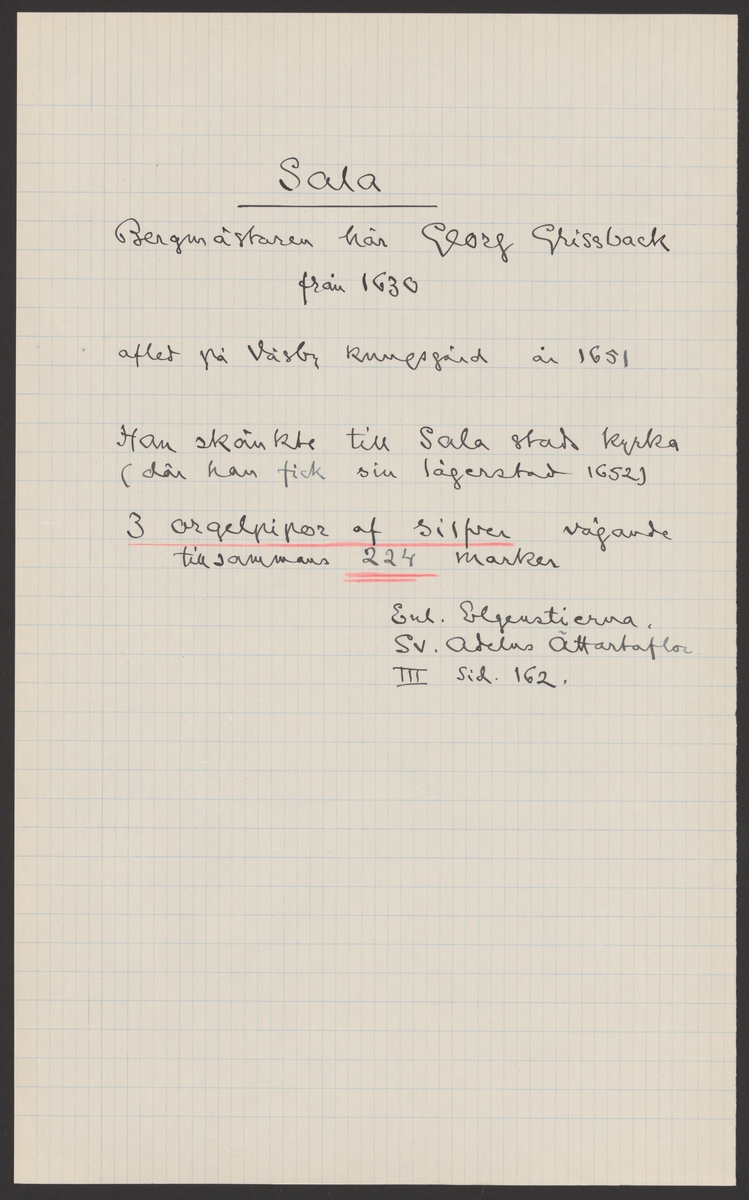 Sala
Bergmästaren här Georg Grissback
från 1630
afled på Väsby kungsgård år 1651
Han skänkte till Sala stads kyrka
(där han fick sin lägerstad 1652)
3 orgelpipor af silfver vägande
tillsammans 224 marker
Enl. Elgenstierna.
Sv. Adelns Ättartaflor
III Sid. 162.